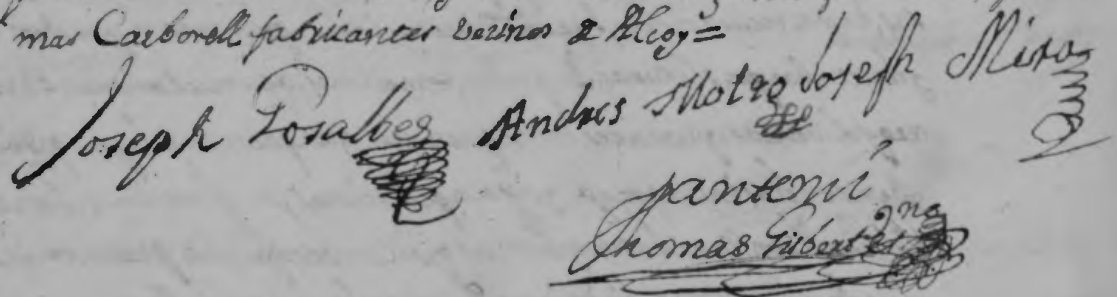 mas Carbonell fabricantes vecinos de Alcoy =
Joseph Gosalbes Andres Molto Joseph Mira
Pantemi
Thomas Gisbert esno